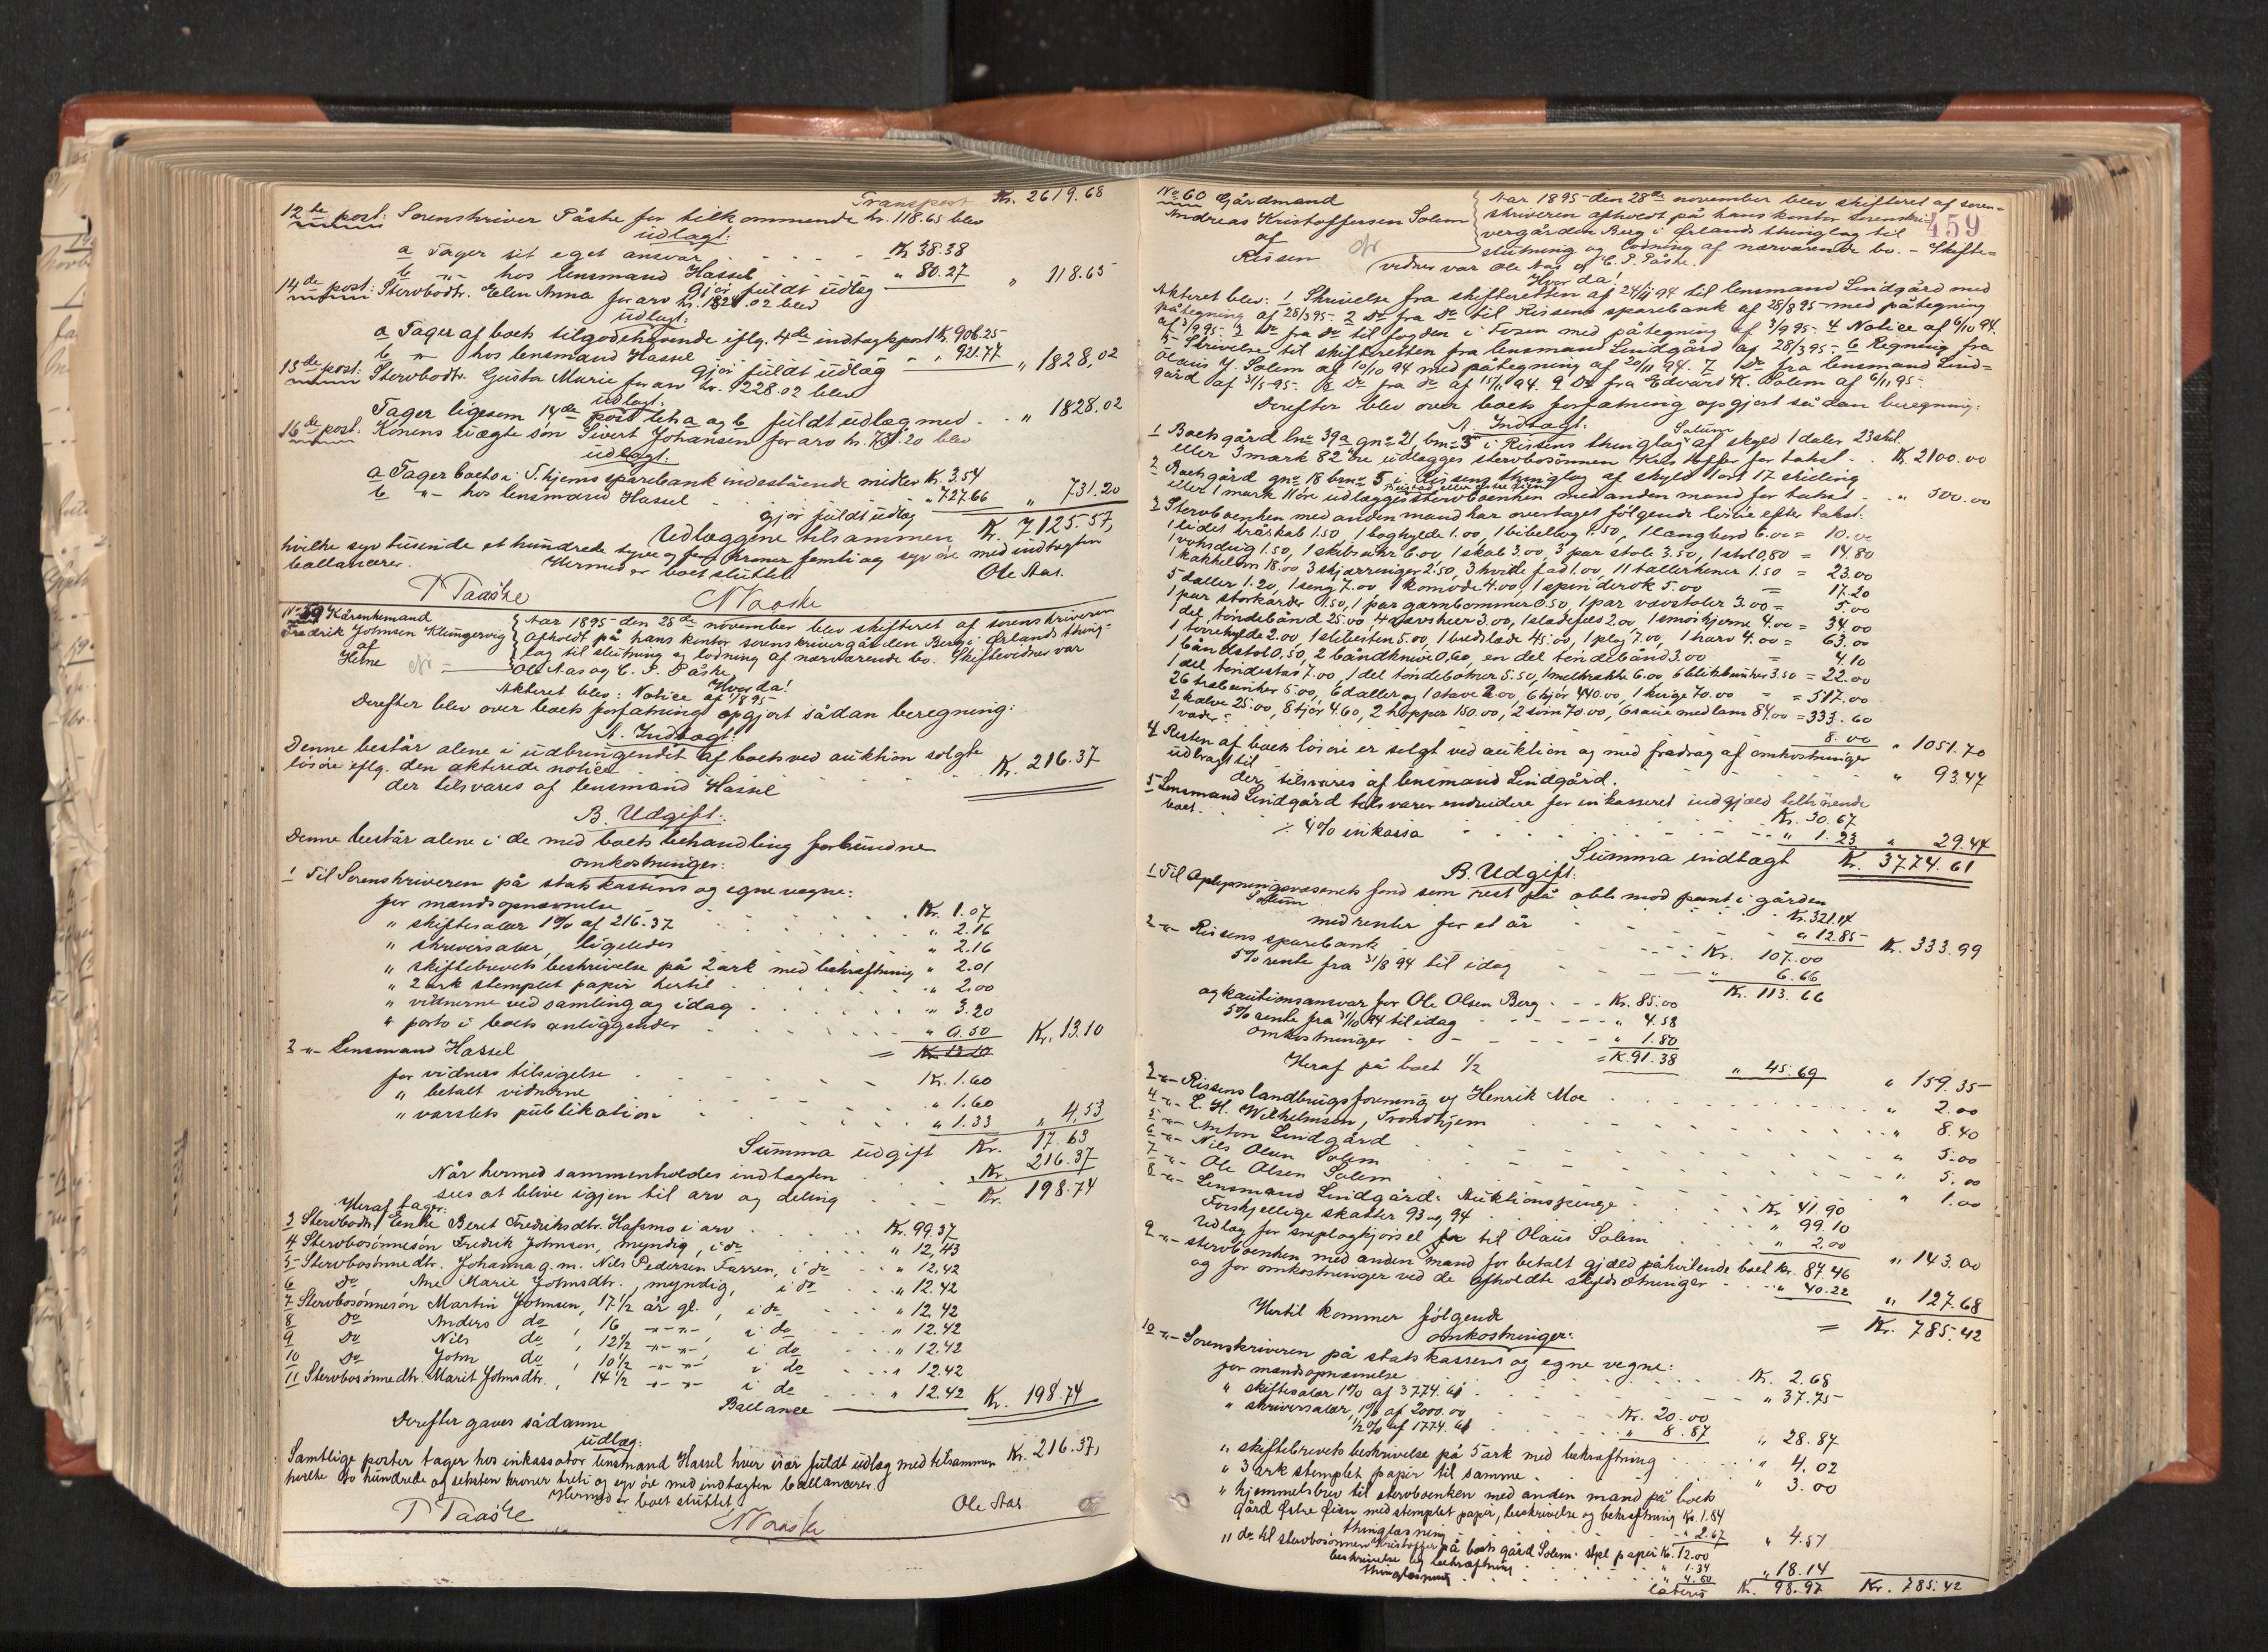 Transport Kr. 2619.68
12te post: Sorenskriver Påske for tilkommende kr. 118.65 blev
udlagt:
a Tager sit eget ansvar . . . . Kr 38.38
b " hos lensmand Hassel . . . . " 80.27 " 118.65
gjør fuldt udlæg
14de post: Stervbodtr. Elen Anna for arv kr. 1828.02 blev
udlagt:
a Tager af boets tilgodehavende iflg. 4de indtægtspost K. 906.25
b " hos lensmand Hassel . . . . " 921.77 " 1828.02
gjør fuldt udlæg
15de post: Stervbodtr. Gusta Marie for arv kr. 1828.02 blev
udlagt:
Tager ligesom 14de post lit a og b fuldt udlæg med - " 1828.02
16de post: Konens uægte søn Sivert Johansen for arv kr. 731.20 blev
udlagt:
a Tager boets i T.hjems sparebank indestående midler Kr. 3.54
b " hos lensmand Hassel . . . " 727.66 " 731.20
gjør fuldt udlæg
Udlæggene tilsammen K. 7125.57,
hvilke syv tusinde et hundrede tyve og fem kroner femti og syv øre med indtægten
ballancerer. Hermed er boet sluttet
P Paaske N Paaske Ole Aas.
No 59 Kårenkemand
Fredrik Johnsen Klungervig
af
Heine
Aar 1895 den 28de november blev skifteret af sorenskriveren
afholdt på hans kontor sorenskrivergården Berg i Ørlands thing-
lag til slutning og lodning af nærværende bo. Skiftevidner var
Ole Aas og C. P. Påske.
Hvor da!
Akteret blev: Notice af 1/8 95
Derefter blev over boets forfatning opgjort sådan beregning:
A. Indtægt:
Denne består alene i udbringendet af boets ved auktion solgte
løsøre iflg. den akterede notice . . . . Kr. 216.37
der tilsvares af lensmand Hassel
B. Udgift:
Denne består alene i de med boets behandling forbundne
omkostninger:
1 Til Sorenskriveren på statskassens og egne vegne:
for mandsopnævnelse . . . . Kr. 1.07
" skiftesalær 1% af 216.37 . . . " 2.16
" skriversalær, ligeledes . . . " 2.16
" skiftebrevets beskrivelse på 2 ark med bekræftning " 2.01
" 2 ark stemplet papir hertil . . . " 2.00
" vidnerne ved samling og idag . . . " 3.20
" porto i boets anliggender . . . " 0.50 Kr. 13.10
= Kr. 13.10
2 " Lensmand Hassel
for vidners tilsigelse . . . Kr. 1.60
" betalt vidnerne . . . " 1.60
" varslets publikation . . . " 1.33 " 4.53
Summa udgift Kr. 17.63
Når hermed sammenholdes indtægten . . . Kr. 216.37
sees at blive igjen til arv og deling . . Kr. 198.74
Heraf tager:
3 Stervbodts Enke Beret Fredriksdtr. Hafsmo i arv . . Kr. 99.37
4 Stervbosønnesøn Fredrik Johnsen, myndig, i do . . . " 12.43
5 Stervbosønnedtr. Johanna g. m. Nils Pedersen Farren, i do " 12.42
6 do Ane Marie Johnsdtr., myndig, i do . . . " 12.42
7 Stervbosønnesøn Martin Johnsen, 17½ år gl. i do " 12.42
8 do Anders do , 16 " " , i do . . . " 12.42
9 do Nils do , 12½ " " , i do . . . " 12.42
10 do John do , 10½ " " , i do . . . " 12.42
11 Stervbosønnedtr. Marit Johnsdtr. , 14½ " " i do . . . " 12.42 Kr. 198.74
Ballance
Derefter gaves sådanne
udlæg:
Samtlige poster tager hos inkassator lensmand Hassel hver især fuldt udlæg med tilsammen Kr. 216.37,
hvilke to hundrede og seksten kroner treti og syv øre med indtægten ballancerer.
Hermed er boet sluttet
P Paaske N Paaske Ole Aas
459
No 60 Gårdmand
Andreas Kristoffersen Solem
af
Rissen
Aar 1895 den 28de november blev skifteret af soren-
skriveren afholdt på hans kontor Sorenskri-
vergården Berg i Ørlands thinglag til
slutning og lodning af nærværende bo. - Skifte-
vidner var Ole Aas og C. P. Påske.
Hvor da!
Akteret blev: 1 Skrivelse fra skifteretten af 24/11 94 til lensmand Lindgård med
påtegning af 28/3 95. 2 Do fra Do til Rissens sparebank af 28/8 95 med påtegning
af 3/9 95. 3 Do fra do til fogden i Fosen med påtegning af 3/9 95. 4 Notice af 6/10 94.
5 Skrivelse til skifteretten fra lensmand Lindgård af 28/3 95. 6 Regning fra
Olaus J. Solem af 10/10 94 med påtegning af 20/11 94. 7 Do fra lensmand Lind-
gård af 31/5 95. 8 Do fra do af 15/11 94. 9 Do fra Edvard K. Solem af 6/11 95.
Derefter blev over boets forfatning opgjort sådan beregning:
A. Indtægt:
1 Boets gård lno 39a gno 21, bno 5 Solum i Rissens thinglag af skyld 1 daler 23 skil.
eller 3 mark 82 øre udlægges stervbosønnen Kristoffer for takst . . K. 2100.00
2 Boets gård gno 18 brno 5 i Rissens thinglag af skyld 1 ort 17 skilling
eller 1 mark 11 øre udlægges stervboenken med anden mand for takst . . " 500.00
3 Stervboenken med anden mand har overtaget følgende løsøre efter takst:
1 lidet træskab 1.50, 1 boghylde 1.00, 1 bibelbog 1.50, 1 langbord 6.00 = 10.00
1 voksdug 1.50, 1 skibsuhr 6.00, 1 skab 3.00, 3 par stole 3.50, 1 stol 0.80 = 14.80
1 kakkelovn 18.00 3 skjærringer 2.50, 3 hvide fad 1.00, 11 tallerkener 1.50 = 23.00
5 daller 1.20, 1 seng 7.00 1 komode 4.00, 1 spinderok 5.00 = 17.20
1 par storkarder 1.50, 1 par garnbommer 0.50, 1 par vævstoler 3.00 = 5.00
1 del tøndebånd 25.00, 4 vævskeer 3.00, 1 slædefels 2.00 1 smørkjerne 4.00 = 34.00
1 tørrehylde 2.00, 1 slibesten 5.00, 1 bredslæde 45.00, 1 plog 7.00, 1 harv 4.00 = 63.00
1 båndstol 0.50, 2 båndknive 0.60, en del tøndebånd 3.00 = 4.10
1 del tøndestav 7.00, 1 del tøndebotner 5.50, 1 melkrakke 6.00, 6 blikbunker 3.50 = 22.00
26 træbunker 5.00, 6 daller og 1 stave 2.00, 6 kjør 440.00, 1 kvige 70.00 = 517.00
2 kalve 25.00, 8 tjor 4.60, 2 hopper 150.00, 2 svin 70.00, 6 sauer med lam 84.00 = 333.60
1 væder . . . 8.00 " 1051.70
4 Resten af boets løsøre er solgt ved auktion og med fradrag af omkostninger
udbragt til . . . . " 93.47
der tilsvares af lensmand Lindgård.
5 Lensmand Lindgård tilsvarer endvidere for inkasseret indgjæld tilhørende
boet . . . Kr. 30.67
÷ 4% inkasso . . . . " 1.23 " 29.44
Summa indtægt Kr. 3774.61
B. Udgift:
1 Til Oplysningsvæsenets fond som rest på obl. mod pant i gården
Solum . . . Kr. 321.14
med renter for et år . . . " 12.85 Kr. 333.99
2 " Rissens sparebank . . . Kr. 107.00
5% rente fra 31/8 94 til idag . . . " 6.66
Kr. 113.66
og kautionsansvar for Ole Olsen Berg . . . Kr. 85.00
5% rente fra 31/10 94 til idag . . . " 4.58
omkostninger . . . " 1.80
= K. 91.38
Heraf på boet ½ " 45.69 " 159.35
3 " Rissens landbrugsforening v/ Henrik Moe . . . " 2.00
4 " L. H. Wilhelmsen, Trondhjem . . . " 8.40
5 " Anton Lindgård . . . " 5.00
6 " Nils Olsen Solem . . . " 5.00
7 " Ole Olsen Solem . . . " 1.00
8 " Lensmand Lindgård: Auktionspenge . . Kr. 41.90
Forskjellige skatter 93 og 94 . . . " 99.10
Udlæg for sneplogkjørsel til Olaus Solem . . . " 2.00 " 143.00
9 " stervboenken med anden mand for betalt gjæld påhvilende boet Kr. 87.46
og for omkostninger ved de afholdte skyldsætninger . . . " 40.22 " 127.68
= Kr. 785.42
Hertil kommer følgende
omkostninger:
10 " Sorenskriveren på statskassens og egne vegne:
for mandsopnævnelse . . . Kr. 2.68
" skiftesalær 1% af 3774.61 . . . " 37.75
" skriversalær, 1% af 2000.00 . . . Kr. 20.00
½% af 1774.61 . . . " 8.87 " 28.87
" skiftebrevets beskrivelse på 5 ark med bekræftning . . . " 4.02
" 3 ark stemplet papir til samme . . . " 3.00
" hjemmelsbrev til stervboenken med anden mand på boets
gård Østre Øien med stemplet papir, beskrivelse og bekræftning Kr. 1.84
thinglæsning . . . " 2.67 " 4.51
" do til stervbosønnen Kristoffer på boets gård Solem: stpl. papir Kr. 12.00
beskrivelse og bekræftning . . . " 1.34
thinglæsning . . . " 4.80 " 18.14
Lateris K. 98.97 Kr. 785.42